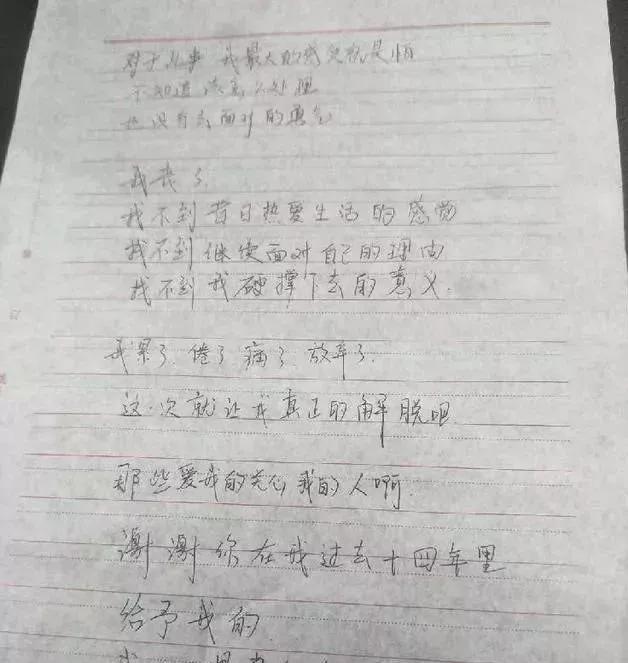 对于 事 我最大的感觉就是怕
不知道该怎么处理
也没有去面对的勇气
我丧了
找不到昔日热爱生活的感觉
找不到继续面对自己的理由
找不到我硬撑下去的意义.
我累了.倦了 痛了.放弃了.
这次就让我真正的解脱吧
那些爱我的关心我的人啊.
谢谢你在我过去十四年里
给予我的